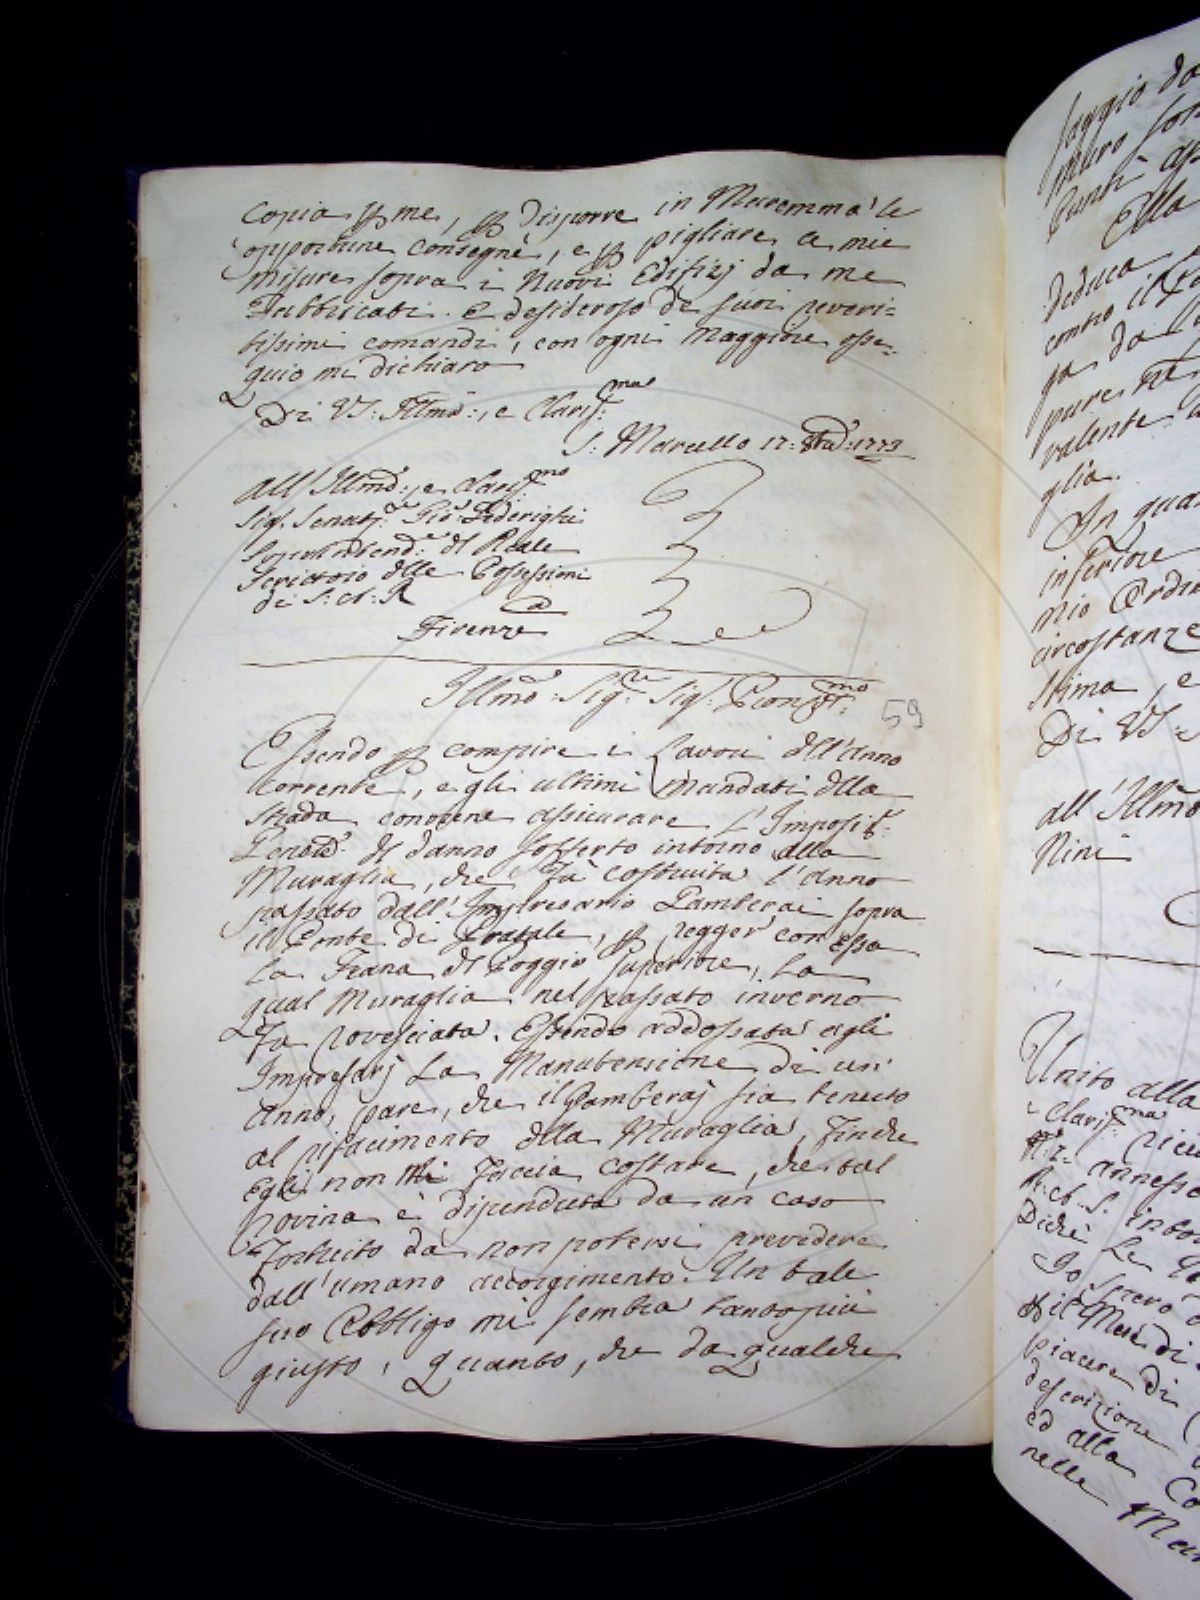 copia p me, p disporre in Maremma le
opportune consegne, e p pigliare le mie
misure sopra i Nuovi Edifizj da me
Fabbricati. e desideroso de suoi reveri=
tissimi comandi, con ogni Maggiore osse=
quio mi dichiaro
Di VS: Illma:, e Clarisma:
S. Marcello 17: 1773
All'Illmo:, e Clarismo
Sigr. Senatre. Gio: Federighi
Soprintende. dl Reale
Scrittoio dlle Possessioni
di S: A: R
Firenze
Illmo: Sigre Sigr. Pron Col:mo 59
Essendo p compire i Lavori dll'anno
corrente, e gli ultimi Mandati dlla
strada conviene assicurare L'Imposit:
dl danno sofferto intorno alla
Muraglia, che fù costruita l'anno
passato dall'Impresario Gamberai sopra
il Ponte di p regger con essa
La Frana dl Poggio superiore, La
qual Muraglia nel passato inverno
fu rovesciata. Essendo addossata agli
Impresarj La Manutensione di un'
anno, pare, che il Gamberaj sia tenuto
al rifacimento dlla Muraglia, finche
Egli non Mi faccia costare, che tal
rovina è dipenduta da un caso
Fortuito da non potersi prevedere
dall'umano accorgimento. Un tale
suo Obbligo mi sembra tantopiù
giusto, quanto, che da qualche
saggio da
muro
Ella
deduca
contro il
ga da
pure
valente
glia.
In quan
inferiore
Mio Ordi
circostanze
stima, e
Di VS:
all'Illmo
Nini
Unito alla
Clarisma
annessa
R. A. S. intor
Diche Le
Io spero
il Mese di
piacere di
descrizione
ed alla Co
nelle Mar